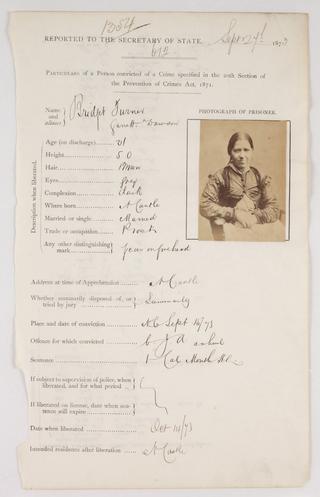 1354
REPORTED TO THE SECRETARY OF STATE. Sept 24 1873
612
PARTICULARS of a Person convicted of a Crime specified in the 20th Section of
the Prevention of Crimes Act, 1871.
Name and aliases } Bridget Turner
Dawson
PHOTOGRAPH OF PRISONER.
Description when liberated.
Age (on discharge)
Height 5 0
Hair Brown
Eyes Grey
Complexion dark
Where born N Castle
Married or single Married
Trade or occupation
Any other distinguishing mark } forehead
Address at time of Apprehension N Castle
Whether summarily disposed of, or tried by jury } Summarily
Place and date of conviction N C Sept 14/73
Offence for which convicted
Sentence 1 Cal Month HL
If subject to supervision of police, when liberated, and for what period
If liberated on license, date when sentence will expire
Date when liberated Oct 14/73
Intended residence after liberation N Castle